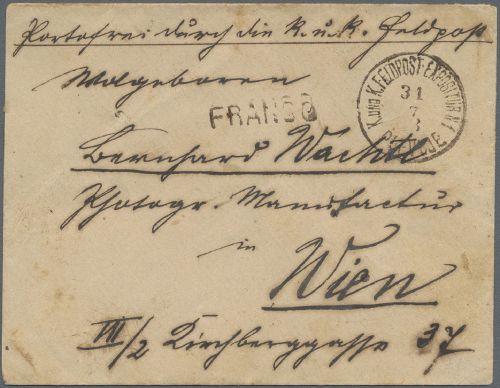 Portofrei durch die k. u. k. Feldpost
Wolgeboren
FRANCO
K. UND K. FELDPOST-EXPOSITUR № 1
31
7
PLEVLJE
Bernhard Wachtl
Photogr. Manufactur
in
Wien
VII/2 Kirchberggasse 37